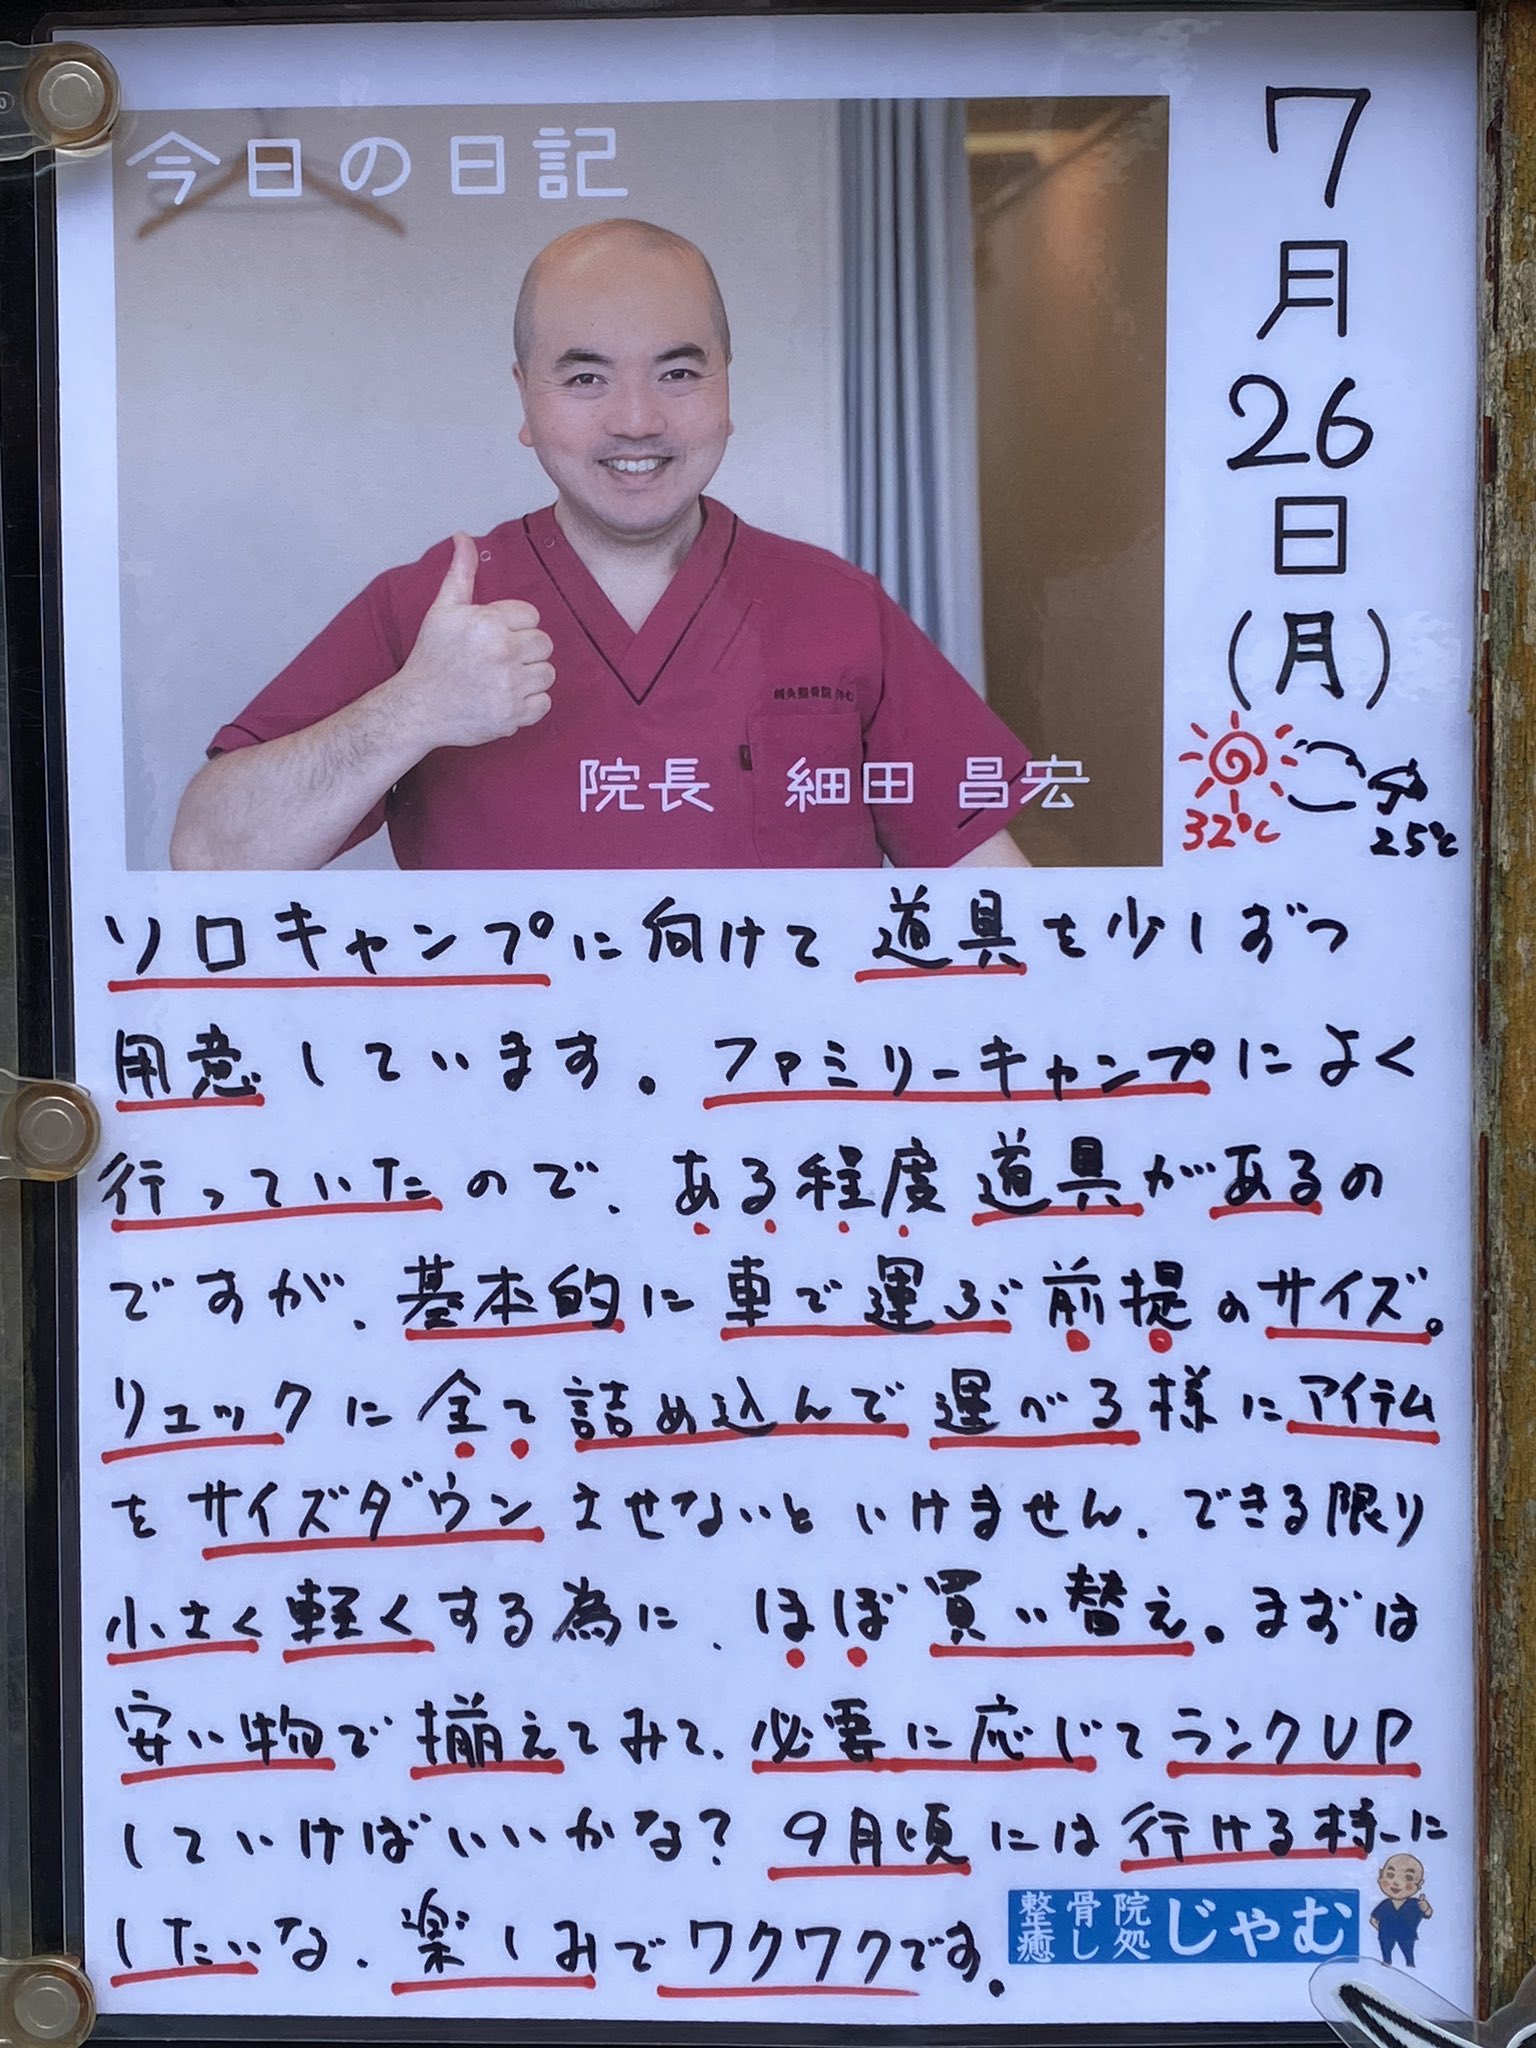 今日の日記
7月26日(月)
32℃
25℃
鍼灸整骨院 じゃむ
院長 細田 昌宏
ソロキャンプに向けて道具を少しずつ
用意しています。ファミリーキャンプによく
行っていたので、ある程度道具があるの
ですが、基本的に車で運ぶ前提のサイズ。
リュックに全て詰め込んで運べる様にアイテム
をサイズダウンさせないといけません。できる限り
小さく軽くする為に、ほぼ買い替え。まずは
安い物で揃えてみて、必要に応じてランクUP
していけばいいかな?9月頃には行ける様に
したいな、楽しみでワクワクです。
整骨院
癒し処
じゃむ